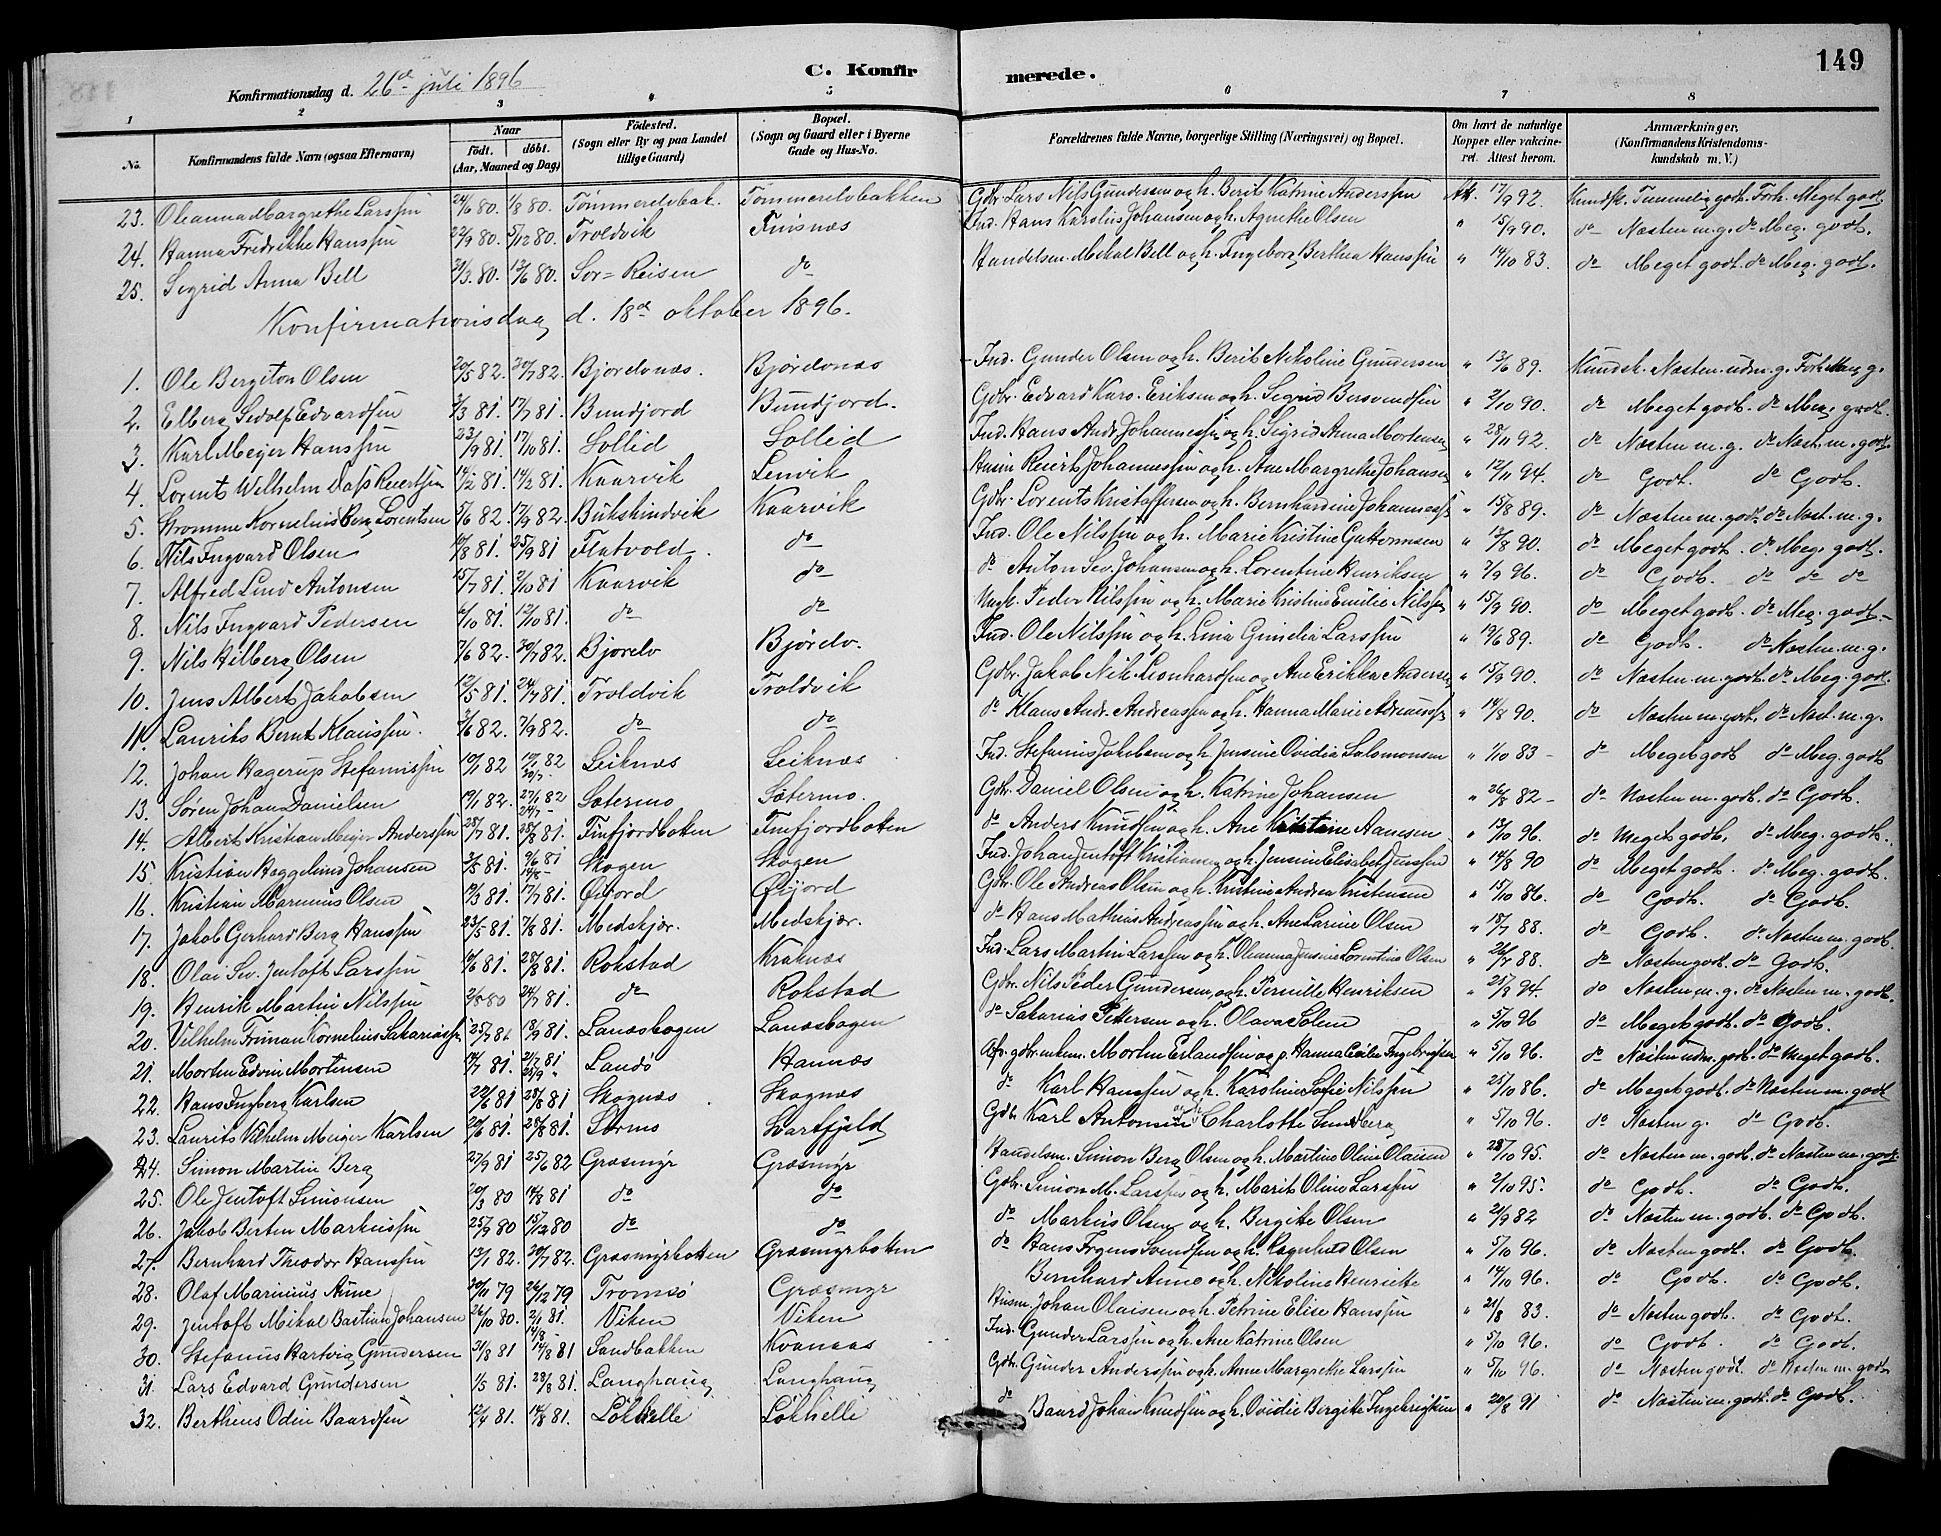 149
C. Konfir merede.
Konfirmationsdag d. 26de juli 1896
1 2 3 4 5 6 7 8
No. Konfirmandens fulde Navn (ogsaa Efternavn) Naar født. døbt. (Aar, Maaned og Dag) Fødested. (Sogn eller By og paa Landet tillige Gaard) Bopæl. (Sogn og Gaard eller i Byerne Gade og Hus-No. Forældrenes fulde Navne, borgerlige Stilling (Næringsvei) og Bopæl. Om havt de naturlige Kopper eller vaccineret. Attest herom. Anmærkninger. (Konfirmandens Kristendomskundskab m. V.)
23. Oleanna Margrethe Larssen 24/6 80. 1/8 80. Tømmerelvbak. Tømmerelvbakken Gdbr. Lars Nils Gundersen og h. Berit Katrine Anderssen Att. 17/9 92. Kundsk. Temmelig godt. Forh. Meget godt.
24. Hanna Fredrikke Hanssen 22/9 80. 5/12 80. Troldvik Finsnæs Ind. Hans Karolius Johansen og h. Agnethe Olsen " 15/9 90. do Næsten m. g. do Meg. godt.
25. Sigrid Anna Bell 31/3 80. 13/6 80. Sør-Reisen do Handelsm. Mikal Bell og h. Ingeborg Berthea Hanssen " 14/10 83. do Meget godt. do Meg. godt.
Konfirmationsdag d. 18de oktober 1896.
1. Ole Bergiton Olsen 20/5 82. 30/7 82. Bjordvnæs. Bjørdvnæs Ind. Gunder Olsen og h. Berit Nikoline Gundersen " 13/6 89. Kundsk. Næsten udm. g. Forh. Meg g.
2. Elberg Sedolf Edvardsen 3/3 81. 17/7 81. Bundjord Bundjord. Gdbr. Edvard Karo. Eriksen og h. Sigrid Bersvendsen " 2/10 90. do Meget godt. do Meg. godt.
3. Karl Meyer Hanssen 23/9 81. 17/10 81. Sollid Sollid Ind. Hans Andr. Johannessen og h. Sigrid Anna Mortensen " 28/11 92. do Næsten m. g. do Næst. m. godt
4. Lorents Wilhelm Dass Reiertsen 14/2 81. 14/2 81. Kaarvik Lenvik Husm Reiert Johannessen og h. Ane Margrethe Johansen " 12/11 94. do Godt. do Godt.
5. Strømme Kornelius Berg Lorentsen 5/6 82. 17/9 82. Bukskindvik Kaarvik Gdbr. Lorents Kristoffersen og h. Bernhardine Johanness. " 15/8 89. do Næsten m. godt. do Næst. m. g.
6. Nils Ingvard Olsen 10/8 81. 25/9 81 Flatvold. do Ind. Ole Nilssen og h. Marie Kristine Guttormsen " 13/8 90. do Meget godt. do Meg. godt.
7. Alfred Lind Antonsen 15/7 81. 2/10 81 Kaarvik do do Anton Sev. Johansen og h. Lorentine Henriksen " 7/9 96. do Godt. do do do
8. Nils Ingvard Pedersen 6/10 81. 12/10 81. do do Ungk. Peder Nilssen og h. Marie Kristine Emilie Nilssen " 15/9 90. do Meget godt. do Meg. godt.
9. Nils Hilberg Olsen 7/6 82. 30/7 82. Bjorelv Bjørelv. Ind. Ole Nilssen og h. Lina Gundelia Larssen " 19/6 89. do Godt. do Næsten m. g.
10. Jens Albert Jakobsen 12/5 81. 24/7 81. Troldvik Troldvik Gdbr. Jakob Nik. Leonhardsen og Ane Erikka Andersen " 15/9 90. do Næsten m. godt. do Meg. godt.
11. Laurits Bernt Klaussen. 3/6 82. 7/9 82. do do do Klaus Andr. Andreassen og h. Hanna Marie Adreass. " 14/8 90. do Næsten m. godt. do Næst. m. g.
12. Johan Hagerup Stefanussen 10/1 82 10/1 82 30/7 - Leiknæs Leiknæs Ind. Stefanus Jakobsen og h. Jensine Ovidia Salomonsen " 1/10 83 - do Meget godt do Meg. godt
13. Søren Johan Danielsen 19/1 82. 27/1 82 24/7 - Sætermo Sætermo. Gdbr. Daniel Olsen og h. Katrine Johansen " 26/8 82 - do Næsten m. godt. do Godt.
14. Albert Kristian Meyer Anderssen 25/7 81. 28/8 81. Finfjordboten Finfjordboten do Anders Knudsen og h. Ane Kristine Hansen " 13/10 96. do Meget godt. do Meg. godt.
15. Kristian Haggelund Johansen 3/5 81. 9/6 81 14/8 - Skogen Skogen Ind. Johan Jentoft Kristiansen og h. Jensine Elisabet Jenssen " 14/8 90 do Meget godt. do Meg. godt.
16. Kristian Marenius Olsen 19/3 81. 17/7 81. Øijord Øijord Gdbr. Ole Andreas Olsen og h. Kristine Andrea Kristensen " 15/10 86. do Godt. do Godt.
17. Jakob Gerhard Berg Hanssen 23/5 81. 7/8 81. Medskjær. Medskjær. do Hans Mathias Andreassen og h. Ane Larine Olsen " 18/7 88. do Godt. do Næsten m. godt.
18. Olai Sev. Jentoft Larssen 10/6 81. 28/8 81. Rokstad Kraknæs Ind. Lars Martin Larssen og h. Oleanna Jensine Lorentine Olsen " 26/7 88. do Næsten godt. do Godt.
19. Henrik Martin Nilssen 2/8 80 24/7 81. do Rokstad Gdbr. Nils Peder Gundersen og h. Pernille Henriksen " 25/8 94. do Næsten m. g. do Næsten m. godt.
20. Vilhelm Friman Kornelius Sakariass. 25/7 81 18/9 81. Lanæsbogen Lanæsbogen do Sakarias Pettersen og h. Olava Solem " 5/10 96 do Meget godt. do Godt.
21. Morten Edvin Mortensen 14/7 81. 21/7 81 25/9 - Landø Hannæs Afv. gdbr. enkem. Morten Erlandsen og p. Hanna Cecilie Ingebrigtsen " 5/10 96. do Næsten udm. godt. do Meget godt.
22. Hans Ingberg Karlsen 22/6 81 28/8 81 Skognæs Skognæs do Karl Hanssen og h. Karoline Sofie Nilssen " 25/10 86. do Meget godt. do Næsten m. godt
23. Laurits Vilhelm Meyer Karlsen 20/6 81. 28/8 81. Sørmo Svartfjeld Gdbr Karl Antonsen og h. Charlotte Sundberg " 5/10 96. do Næsten g. do Godt.
24. Simon Martin Berg 27/9 81 25/6 82 Græsmyr Græsmyr Handelsm. Simon Berg Olsen og h. Martine Oline Olaisen " 28/10 95. do Næsten m. godt. do Næsten m. godt.
25. Ole Jentoft Simonsen 20/3 80 14/8 81 do do Gdbr. Simon M. Larssen og h. Marit Oline Larssen " 2/10 95. do Godt. do Godt.
26. Jakob Bertin Markussen 25/9 80 15/12 80 do do do Markus Olsen og h. Bergitte Olsen " 21/9 82 do Næsten m. godt. do Godt.
27. Bernhard Theodor Hanssen 13/1 82. 20/7 82. Græsmyrboten Græsmyrboten do Hans Jrgens Svendsen og h. Ragnhild Olsen " 5/10 96. do Næsten godt. do Godt.
28. Olaf Marinius Aune 30/11 79 26/12 79 Tromsø Græsmyr Bernhard Aune og h. Nikoline Henriette " 14/10 96. do Godt. do Godt.
29. Jentoft Mikal Bastian Johansen 26/10 80. 2/1 81. Viken Viken Husm. Johan Olaisen og h. Petrine Elise Hanssen " 21/8 83. do Næsten godt. do Godt.
30. Stefanus Hartvig Gundersen 31/8 81 14/8 - 14/8 81 Sandbakken Kvannaas Ind. Gunder Larssen og h. Ane Katrine Olsen " 5/10 96. do Godt do Godt.
31. Lars Edvard Gundersen 1/5 81. 28/8 81. Langhaug Langhaug Gdbr. Gunder Anderssen og h. Anne Margrethe Larssen " 5/10 96. do Næsten godt. do Næsten m. godt
32. Bertheus Odin Baardsen 12/4 81. 14/8 81. Løkhelle Løkhelle do Baard Johan Knudsen og h. Ovidie Bergitte Ingebrigtsen " 20/8 91 do Næsten m. godt. do Godt.